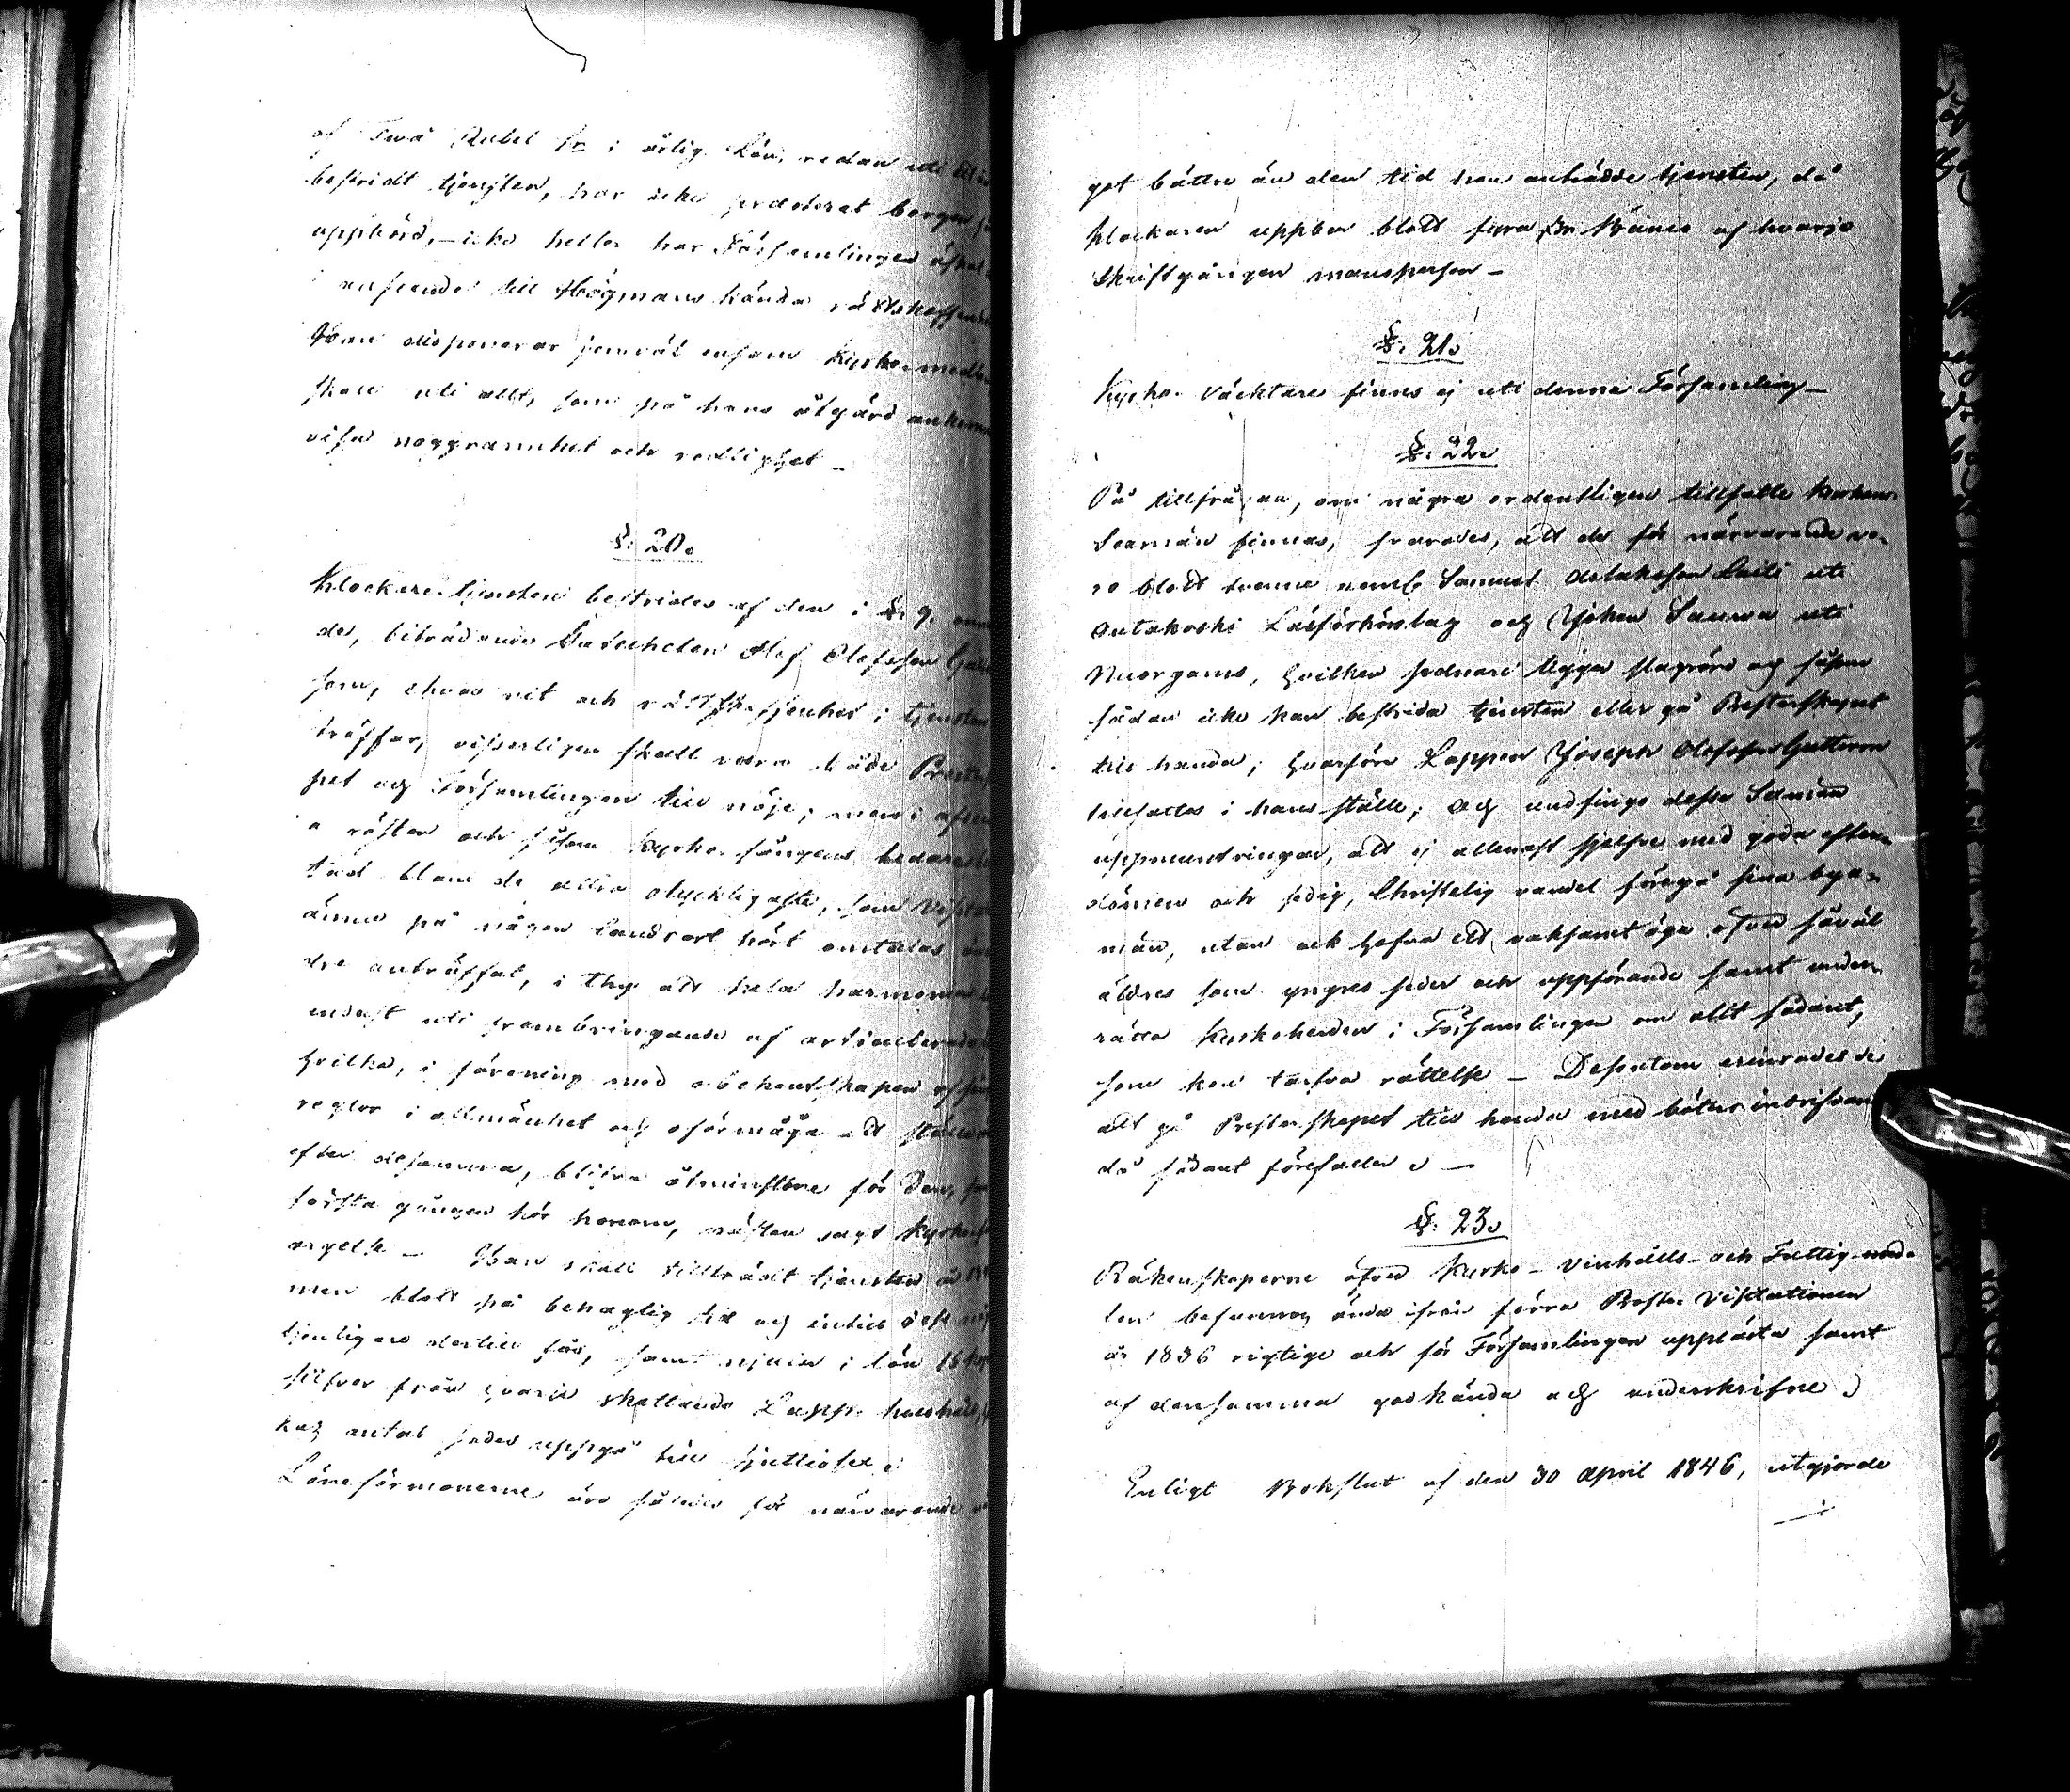 af Två Rubel Sr i årlig Lön, redan uti
bestridt tjensten, har icke præsterat borgen
uppbörd, – icke heller har Församlingen
i anseende till Högmans kända rättskaffen
Han disponerar jemväl ensam Kyrkomed
skall uti allt, som på hans åtgärd ankom
visa noggrannhet och redlighet –
§. 20.
Klockare-tjensten bestrides af den i §. 9.
de, biträdande Catecheten Olof Olofsson
som, ehvad nit och rättskaffenhet i tjensten
träffar, visserligen skall vara både Prester
pet och Församlingen till nöje; men i
a rösten och såsom Kyrko-sångens
tad bland de allra olyckligaste, som
ännu på någon landsort hört omtalas
dre anträffat, i thy att hela harmonien
endast uti frambringande af articulerade
hvilka, i förening med obekantskapen af
reglor i allmänhet och oförmåga att
efter desamma, blifva åtminstone för Den,
första gången hör honom, nästan sagt Kyrko
argelse – Han skall tillträdt tjensten år
men blott på behaglig tid och intill dess
tjenligare dertill fås, samt njuter i lön 15
silfver från hvarje skattande Lapp-hushåll,
antal sades uppgå till sjuttiofem
Löneförmonerne äro således för närvarande
got bättre än den tid han anträdde tjensten, då
klockaren uppbar blott fyra Banco af hvarje
Skriftgången mansperson –
§. 21.
Kyrko-Väcktare finns ej uti denna Församling –
§. 22.
På tillfrågan, om några ordentligen tillsatte
Sexmän finnas, svarades, att de för närvarande vo-
ro blott tvenne neml. Samuel Aslaksson Laiti uti
Outakoski Läsförhörslag och Johan Sauva uti
Nuorgams, hvilken sednare ligger slagrörd och såsom
sådan icke kan bestrida tjensten eller gå Presterskapet
till handa; hvarföre Lappen Joseph Olofsson Guttorm
tillsattes i hans ställe; och undfingo desse Sexmän
uppmuntringar, att ej allenast sjelfve med goda efter-
dömen och sedig, Christelig vandel föregå sina bya-
män, utan ock hafva ett vaksamt öga öfver såväl
äldres som yngres seder och uppförande samt under-
rätta Kyrkoherden i Församlingen om allt sådant,
som kan tarfva rättelse – Dessutom erinrades de
att gå Presterskapet till handa med böters indrifvan
då sådant förefaller –
§. 23.
Räkenskaperne öfver Kyrko- Vinhålls- och Fattig-med-
len befunnos ända ifrån förra Proste-Visitationen
år 1836 rigtige och för Församlingen upplästa samt
af densamma godkända och underskrifne
Enligt Bokslut af den 30 April 1846, utgjorde